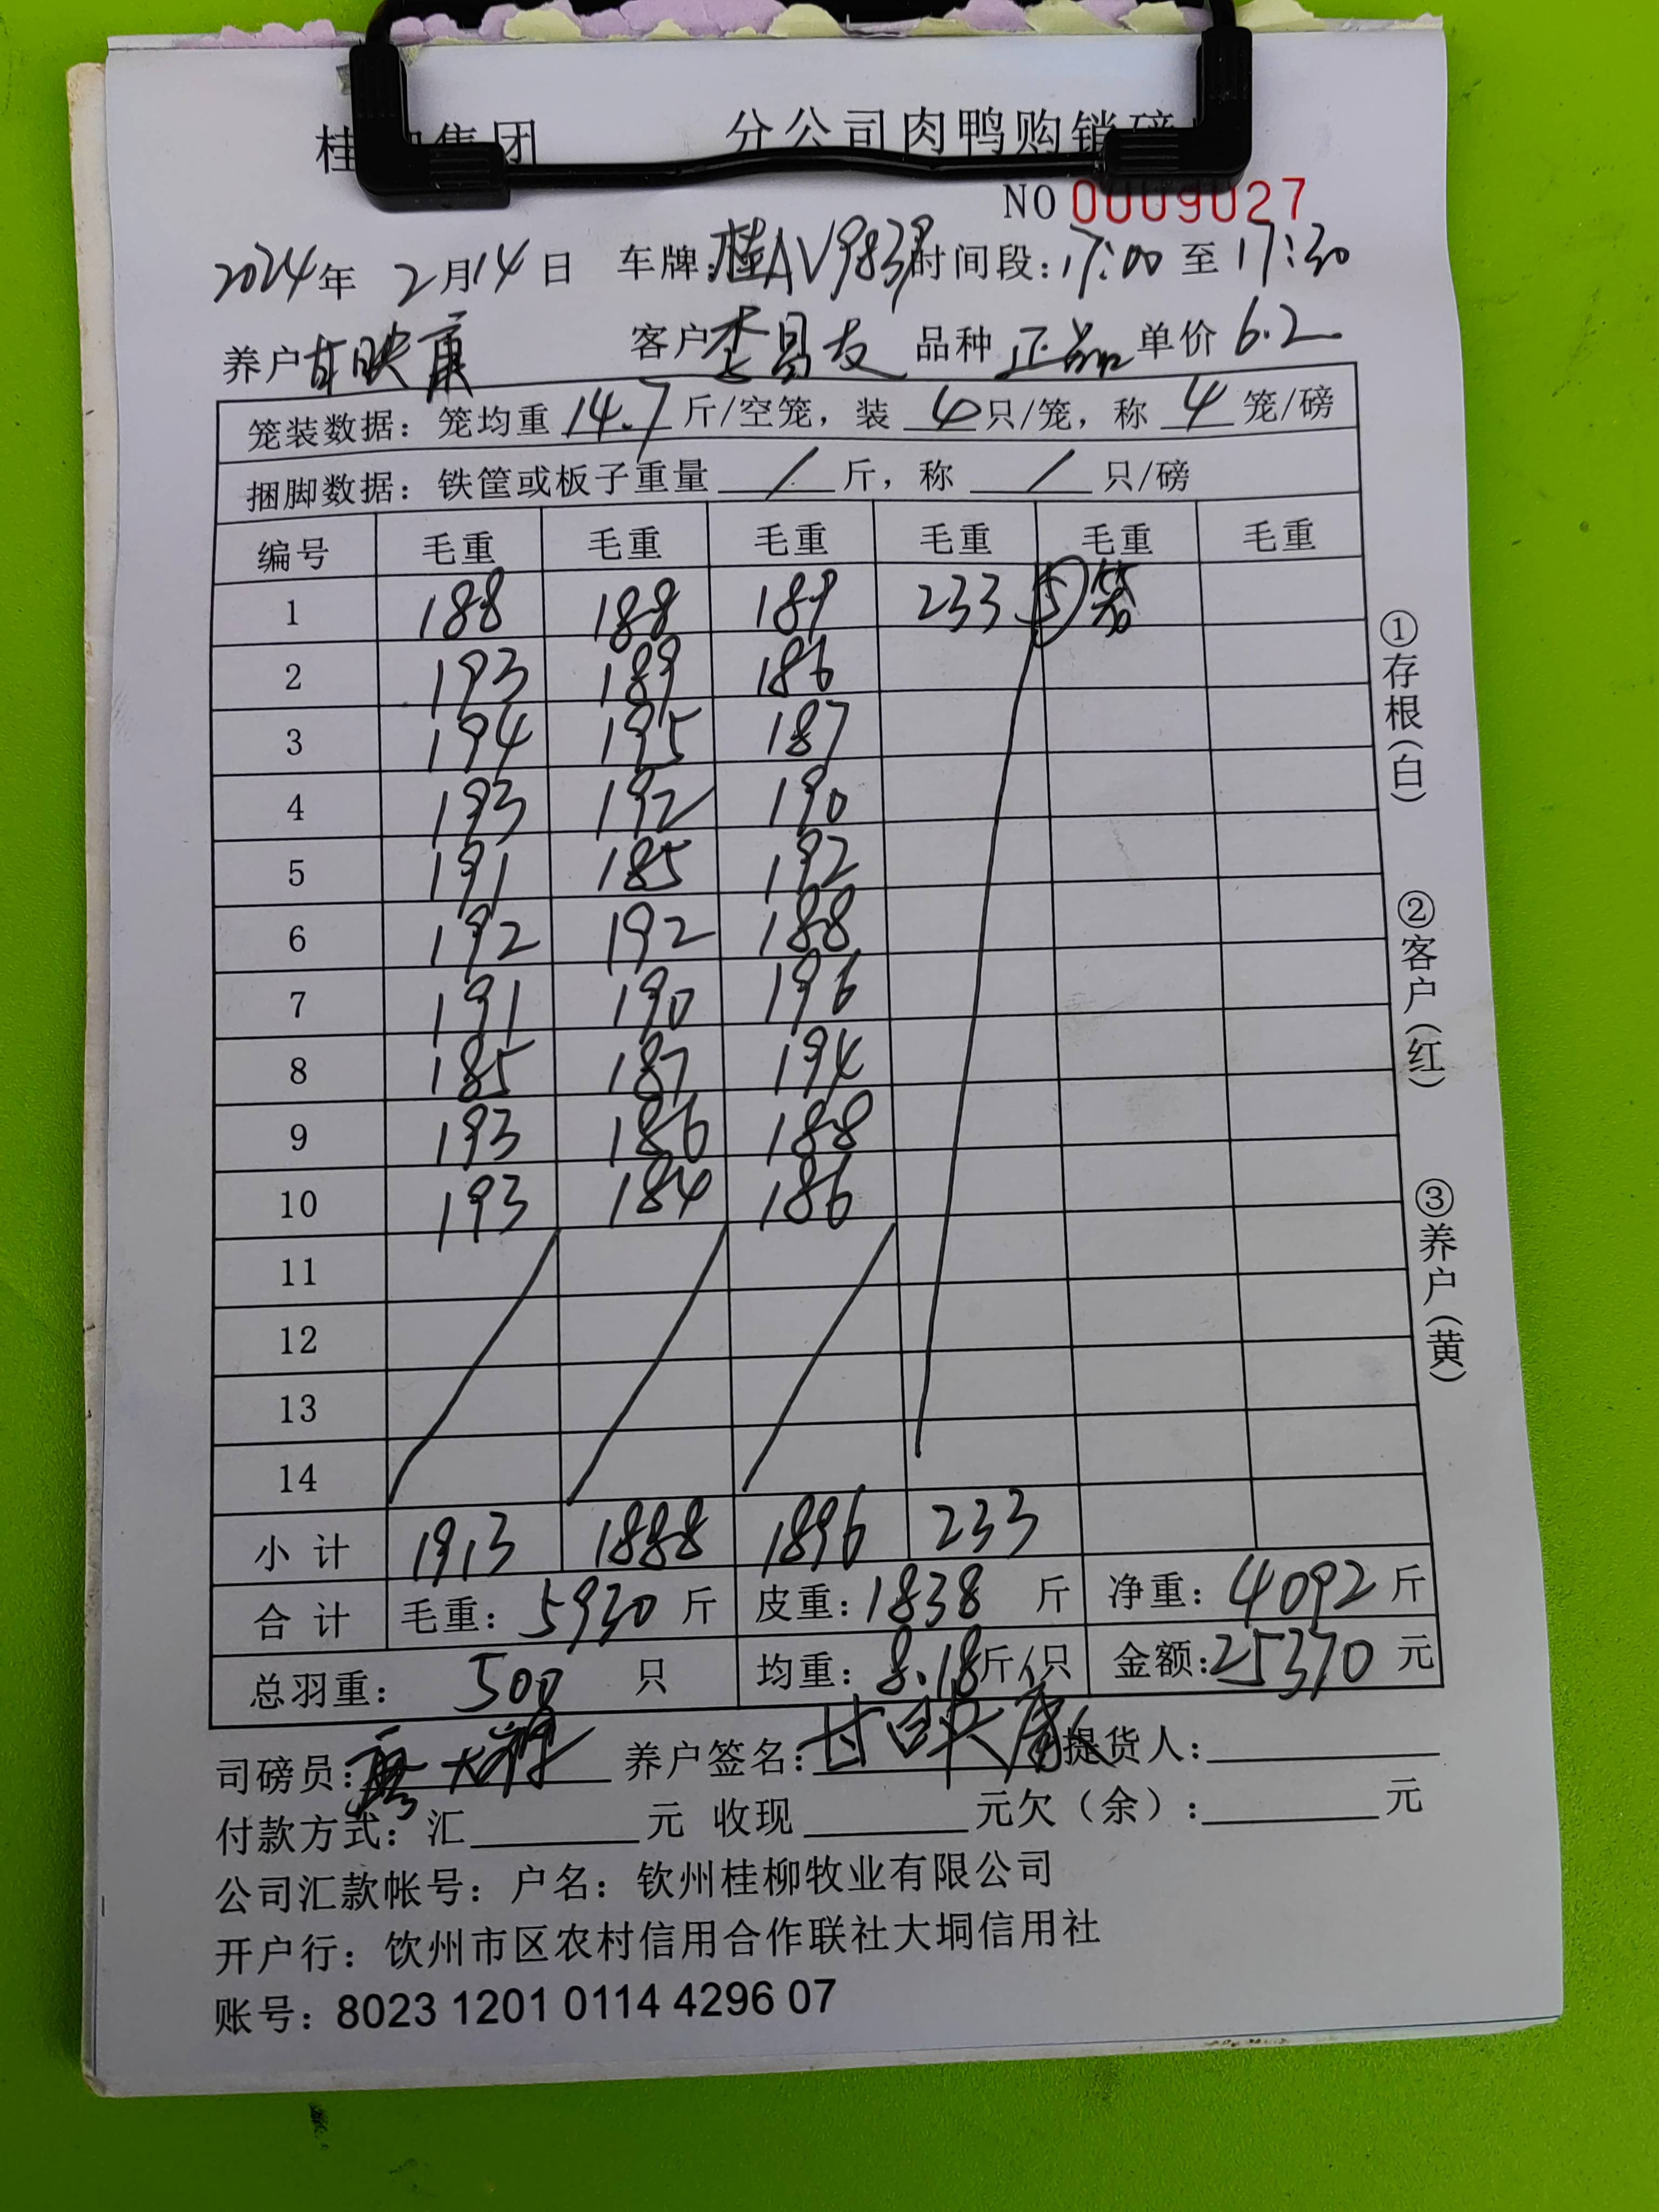 桂 集团 分公司肉鸭购销磅
NO 0009027
2024年 2月14日 车牌:桂AV9839 时间段:17:00 至 17:30
养户 甘映康 客户 李昌友 品种 正品 单价 6.2
笼装数据: 笼均重 14.7 斤/空笼, 装 4 只/笼, 称 4 笼/磅
捆脚数据: 铁筐或板子重量 / 斤, 称 / 只/磅
编号 毛重 毛重 毛重 毛重 毛重 毛重
1 188 188 189 233 ⑤笼
2 193 189 186
3 194 195 187
4 193 192 190
5 191 185 192
6 192 192 188
7 191 190 196
8 185 187 194
9 193 186 188
10 193 184 186
11
12
13
14
小计 1913 1888 1896 233
合计 毛重: 5930 斤 皮重: 1838 斤 净重: 4092 斤
总羽重: 500 只 均重: 8.18 斤/只 金额: 25370 元
司磅员: 养户签名: 甘映康 提货人:
付款方式: 汇 元 收现 元欠(余): 元
公司汇款帐号: 户名: 钦州桂柳牧业有限公司
开户行: 钦州市区农村信用合作联社大垌信用社
账号: 8023 1201 0114 4296 07
①存根(白)
②客户(红)
③养户(黄)